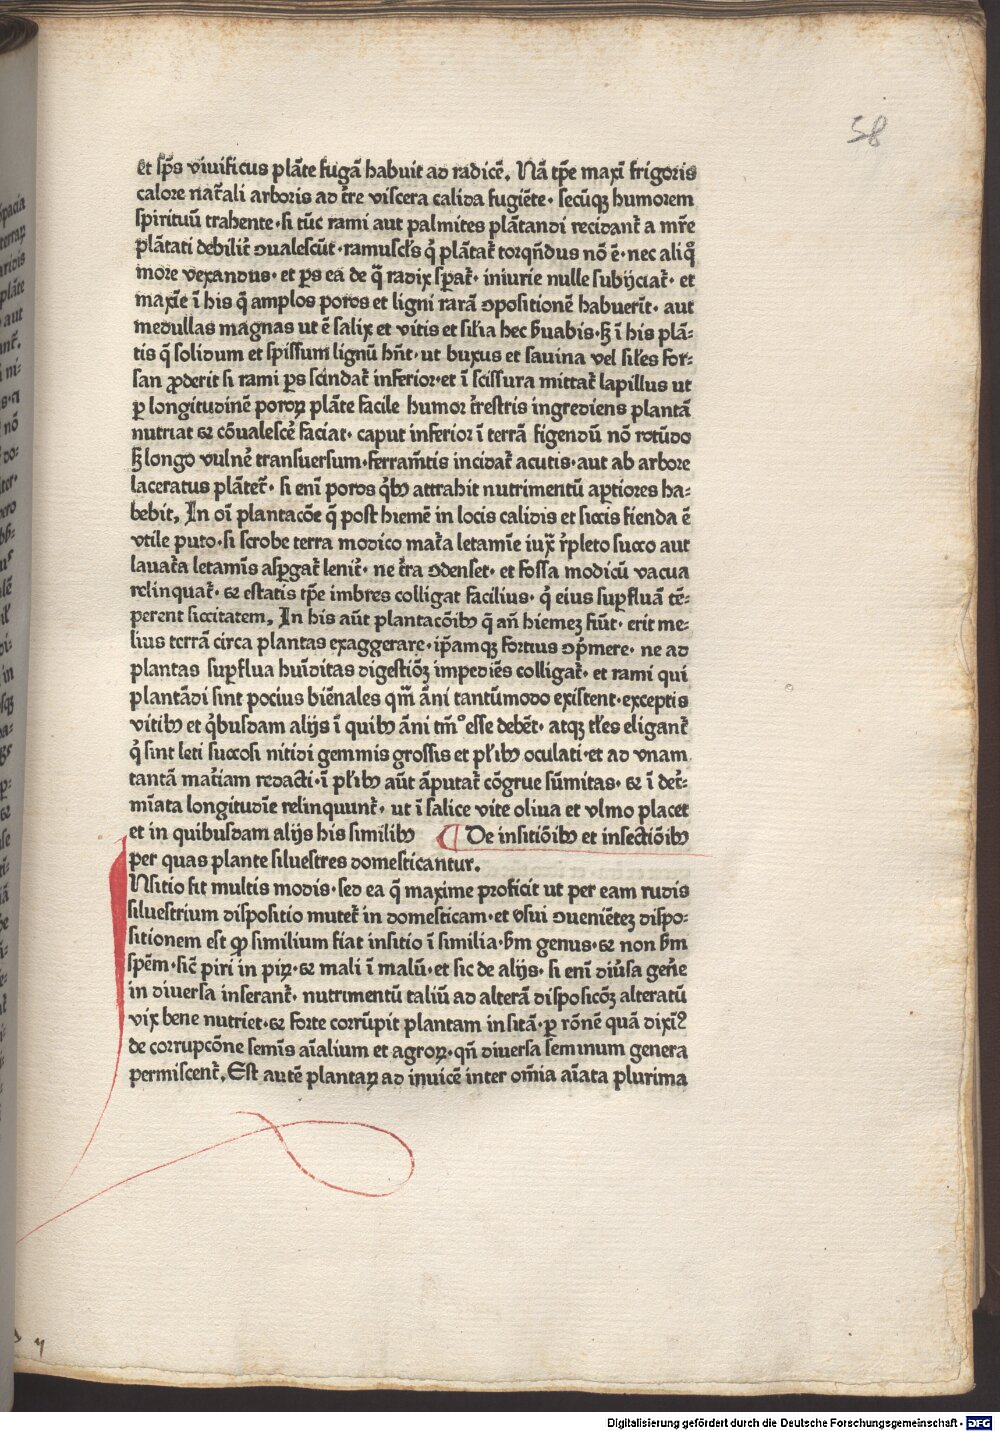 58
et sp̄s viuificus plāte fugā habuit ad radicē. Nā tp̄e maxī frigoris
calore nat̄ali arboris ad t̄re viscera calida fugiēte · secūqꝫ humorem
spirituū trahente · si tūc rami aut palmites plātandi recidant᷑ a mr̄e
plātati debilit᷑ ꝯualescūt · ramuscl̄s q̇ plātat᷑ torqn̄dus nō ē · nec aliq̄
more vexandus · et p̄s ea de q̄ radix sp̄at᷑ · iniurie nulle subijciat᷑ · et
maxīe ī his q̄ amplos poros et ligni rarā ꝯpositionē habuerīt · aut
medullas magnas ut ē salix et vitis et sił̄ia hec ẜuabis · ꝫ ī his plā-
tis q̄ solidum et spissum lignū hn̄t · ut buxus et sauina vel sił̄es for-
san ꝓderit si rami p̄s scindat᷑ inferior · et ī scissura mittat᷑ lapillus ut
ꝑ longitudinē poroꝝ plāte facile humor t̄restris ingrediens plantā
nutriat ⁊ cōualesce᷑ faciat · caput inferior ī terrā figendū nō rotūdo
ꝫ longo vulne᷑ transuersum · ferram̄tis incidat᷑ acutis · aut ab arbore
laceratus plātet᷑ · si enī poros q̇bꝰ attrahit nutrimentū aꝑtiores ha-
bebit. In oī plantacōe q̄ post hiemē in locis calidis et siccis fienda ē
vtile puto · si scrobe terra modico mat̄a letamīe iux̄ r̄pleto succo aut
lauat̄a letamīs asꝑgat᷑ lenit᷑ · ne t̄ra ꝯdenset · et fossa modicū vacua
relinquat᷑ · ⁊ estatis tp̄e imbres colligat facilius · q̇ eius suꝑfluā tē-
perent siccitatem. In his aūt plantacōibꝰ q̄ an̄ hiemeꝫ fiūt · erit me-
lius terrā circa plantas exaggerare · ip̄amqꝫ fortius ꝯp̄mere · ne ad
plantas suꝑflua huīditas digestiōꝫ impediēs colligat᷑ · et rami qui
plantādi sint pocius biēnales qm̄ āni tantūmodo existent · exceptis
vitibꝰ et q̇busdam alijs ī quibꝰ āni tm̄° esse debēt · atqꝫ tł̄es eligant᷑
q̇ sint leti succosi nitidi gemmis grossis et pł̄ibꝰ oculati · et ad vnam
tantā mat̄iam redacti · ī pł̄ibꝰ aūt āputat᷑ cōgrue sūmitas · ⁊ ī det᷑-
mīata longitudīe relinquunt᷑ · ut ī salice vite oliua et vlmo placet
et in quibusdam alijs his similibꝰ ¶ De insitiōibꝰ et insectiōibꝰ
per quas plante siluestres domesticantur.
Nsitio fit multis modis · sed ea q̄ maxime proficit ut per eam rudis
siluestrium dispositio mutet᷑ in domesticam · et vsui ꝯueniēteꝫ dispo-
sitionem est ꝙ similium fiat insitio ī similia · ẜm genus · ⁊ non ẜm
spēm · sic̄ piri in piꝝ · ⁊ mali ī malū · et sic de alijs · si enī diūsa gen̄e
in diuersa inserant᷑ · nutrimentū taliū ad alterā disposicōꝫ alteratū
vix bene nutriet · ⁊ forte corrūpit plantam insitā · ꝑ rōnē quā dixī
de corrupcōne semīs aīalium et agroꝝ · qn̄ diuersa seminum genera
permiscent᷑. Est autē plantaꝝ ad inuicē inter om̄ia aīata plurima
Digitalisierung gefördert durch die Deutsche Forschungsgemeinschaft - DFG